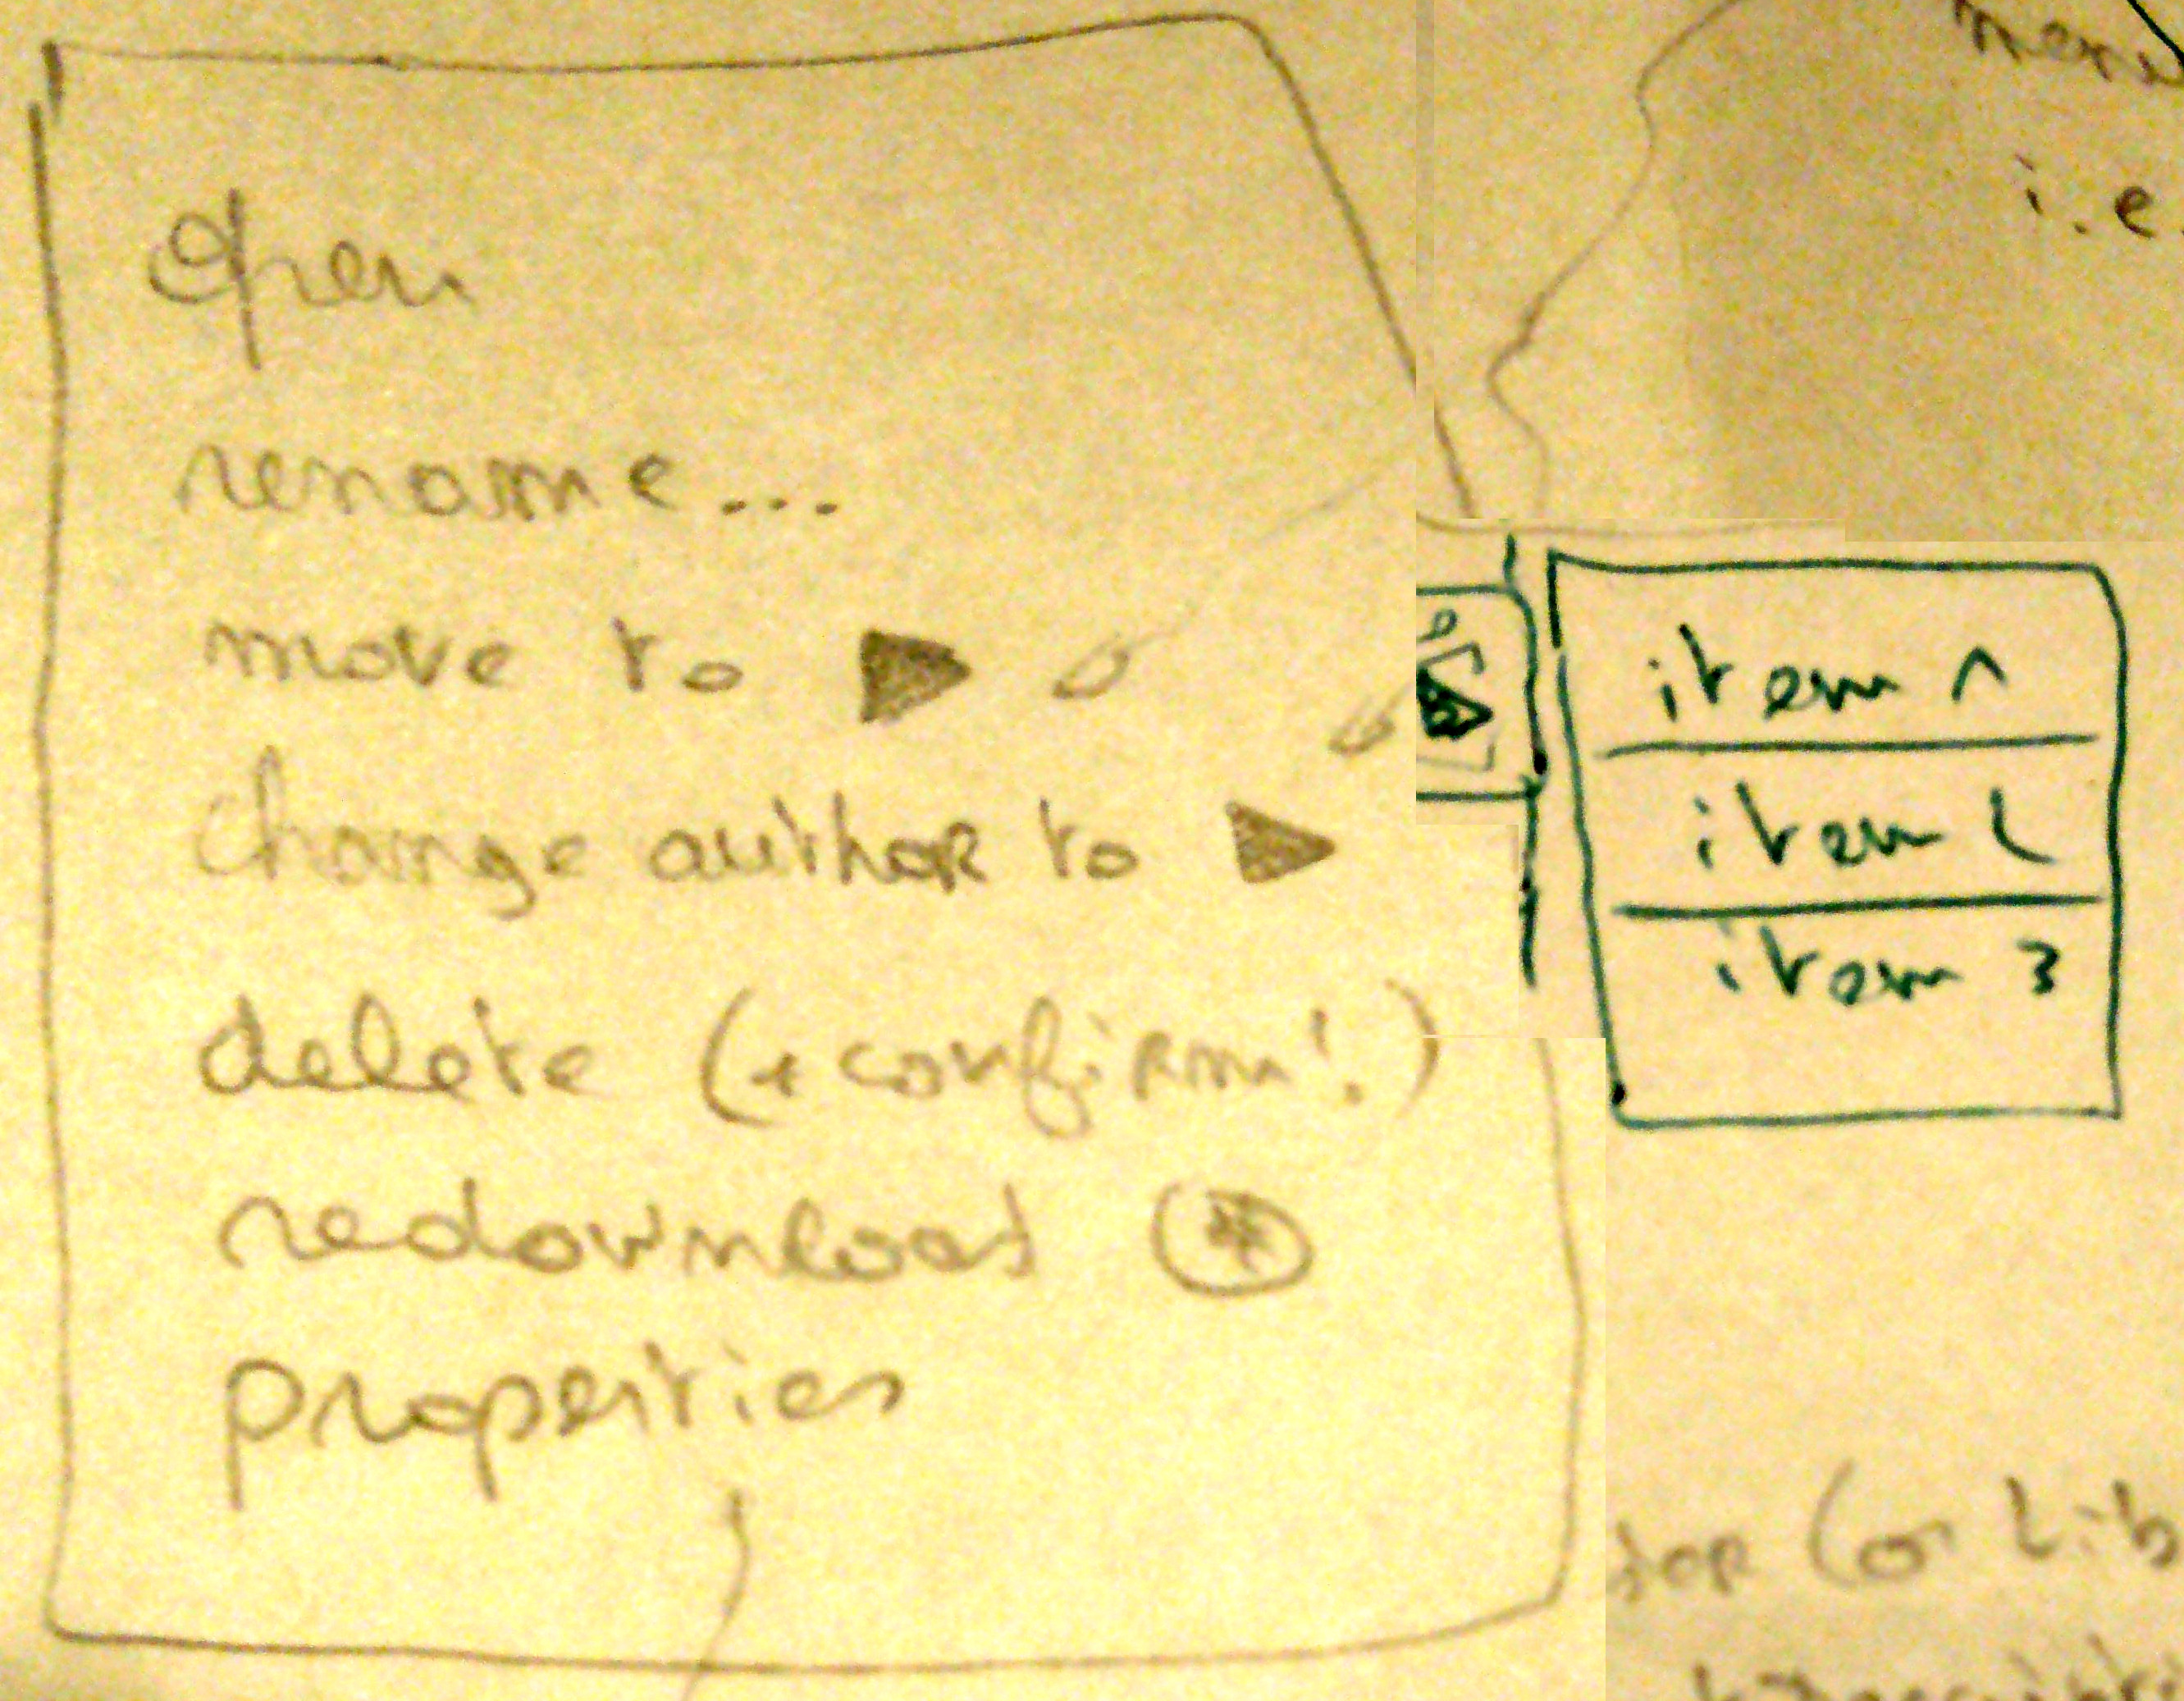 Open
rename...
move to ▶
change author to ▶
delete (+ confirm!)
redownload (*)
properties
i.e.
item 1
item 2
item 3
(or Lib